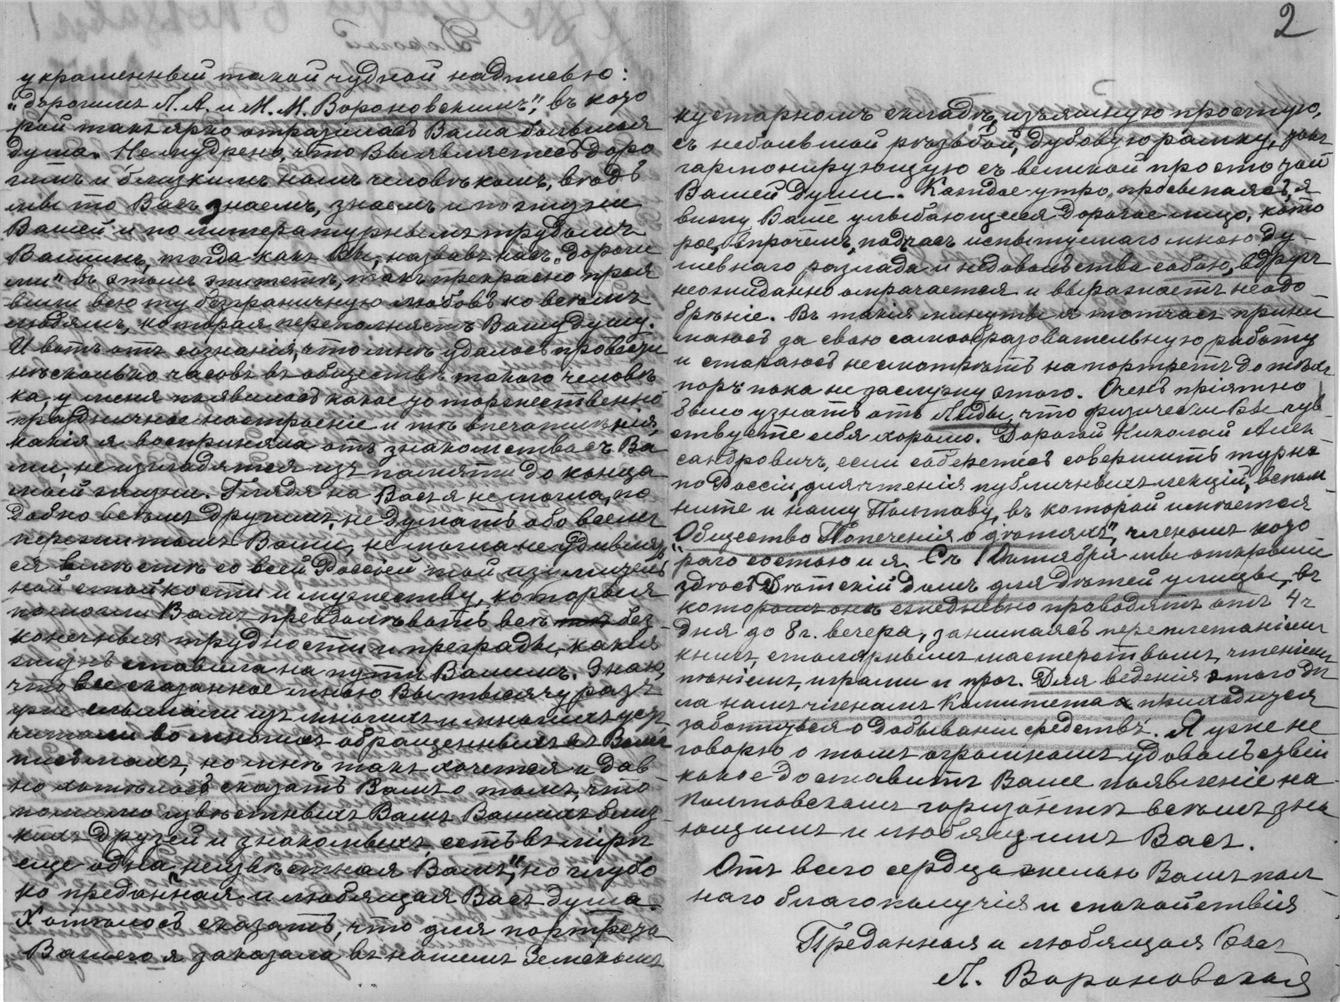 украшенный такой чудной надписью:
"дорогимъ Л. А. и М. М. Вороновскимъ", въ кото
рой такъ ярко отразилась Ваша большая
душа. Немудрено, что Вы являетесь доро
гимъ и близкимъ намъ человѣкомъ, вѣдь
мы то Васъ знаемъ, знаемъ и по жизни
Вашей и по литературнымъ трудамъ
Вашимъ, тогда какъ Вы, назвавъ насъ "дороги
ми" въ этомъ эпитетѣ, такъ прекрасно проя
вили всю ту безграничную любовь ко всѣмъ
людямъ, которая переполняетъ Вашу душу.
И вотъ отъ сознанія, что мнѣ удалось провести
нѣсколько часовъ въ обществѣ такого человѣ
ка, у меня появилось какое то торжественно
праздничное настроеніе и тѣ впечатлѣнія,
какія я восприняла отъ знакомства съ Ва
ми, не изгладятся изъ памяти до конца
моей жизни. Глядя на Васъ я не могла, по
добно всѣмъ другимъ, не думать обо всемъ
пережитомъ Вами, не могла не удивлять
ся вмѣстѣ со всей Россіей той изумитель
ной стойкости и мужеству, которыя
помогли Вамъ преодолѣвать всѣ без
конечныя трудности и преграды, какія
жизнь ставила на пути Вашемъ. Знаю,
что все сказанное мною Вы тысячу разъ
уже слышали изъ многихъ и многихъ устъ
читали во многихъ обращенныхъ къ Вамъ
письмахъ, но мнѣ такъ хочется и дав
но хотѣлось сказать Вамъ о томъ, что
помимо извѣстныхъ Вамъ Вашихъ близ
кихъ друзей и знакомыхъ, есть въ мірѣ
еще одна "неизвѣстная Вамъ", но глубо
ко преданная и любящая Васъ душа.
Хотѣлось сказать, что для портрета
Вашего я заказала въ нашемъ Земскомъ
2
кустарномъ складѣ, изъящную простую,
съ небольшой рѣзьбой, дубовую рамку,
гармонирующую съ великой простотой
Вашей души. Каждое утро, просыпаясь, я
вижу Ваше улыбающееся дорогое лицо, кото
рое, впрочемъ, подчасъ испытуемаго мною ду
шевнаго разлада и недовольства собою, вдругъ
неожиданно омрачается и выражаетъ неодо
брѣніе. Въ такія минуты я тотчасъ прини
маюсь за свою самообразовательную работу
и стараюсь не смотрѣть на портретъ до тѣхъ
поръ пока не заслужу этого. Очень пріятно
было узнать отъ Лиды, что физически Вы чув
ствуете себя хорошо. Дорогой Николай Алек
сандровичъ, если соберетесь совершить турнэ
по Россіи, для чтенія публичныхъ лекцій, вспом
ните и нашу Полтаву, въ которой имѣется
"Общество Попеченія о дѣтяхъ", членомъ кото
раго состою и я. Съ 1 Октября мы открыли
здѣсь Дѣтскій домъ для дѣтей улицы, въ
которомъ онѣ ежедневно проводятъ отъ 4 ч
дня до 8 г. вечера, занимаясь переплетаніемъ
книгъ, столярнымъ мастерствомъ, чтеніемъ
пѣніемъ, играми и проч. Для веденія этого дѣ
ла намъ членамъ Комитета приходится
заботиться о добываніи средствъ. Я уже не
говорю о томъ огромномъ удовольствіи
какое доставитъ Ваше появленіе на
Полтавскомъ горизонтѣ всѣмъ зна
ющимъ и любящимъ Васъ.
Отъ всего сердца желаю Вамъ пол
наго благополучія и спокойствія
Преданная и любящая Васъ
Л. Вороновская